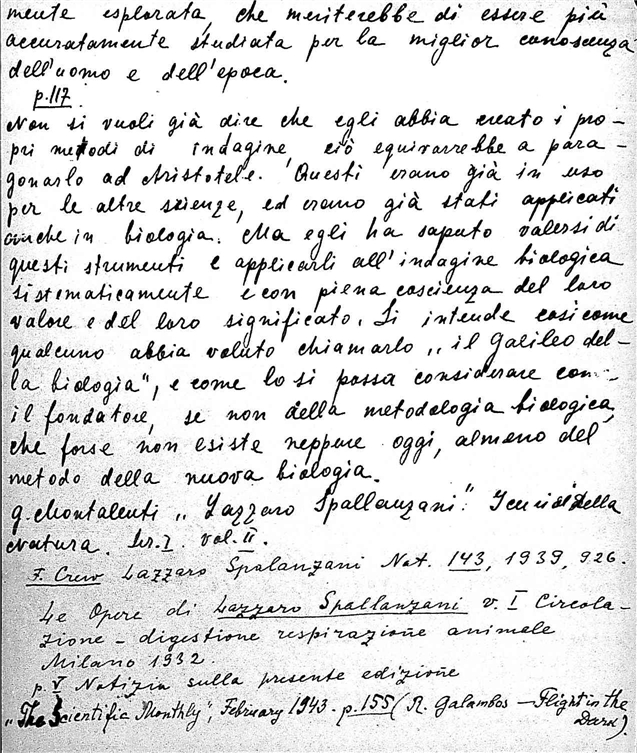 mente esplorata, che meriterebbe di essere più
accuratamente studiata per la miglior conoscenza
dell'uomo e dell'epoca.
p.117.
Non si vuoli già dire che egli abbia creato i pro-
pri metodi di indagine, ciò equivarrebbe a para-
gonarlo ad Aristotele. Questi erano già in uso
per le altre scienze, ed erano già stati applicati
anche in biologia. Ma egli ha saputo valersi di
questi strumenti e applicarli all'indagine biologica
sistematicamente e con piena coscienza del loro
valore e del loro significato. Si intende cosi come
qualcuno abbia voluto chiamarlo „il Galileo del-
la biologia", e come lo si possa considerare
il fondatore, se non della metodologia biologica,
che forse non esiste neppure oggi, almeno del
metodo della nuova biologia.
G. Montalenti „Lazzaro Spallanzani". della
Natura. Ser. I. vol. II.
F. Crew Lazzaro Spalanzani Nat. 143, 1939, 926.
Le Opere di Lazzaro Spallanzani v. I Circola-
zione - digestione respirazione animale
Milano 1932.
p. V Notizia sulla presente edizione
„The Scientific Monthly", February 1943. p.155 (R. Galambos - Flight in the
Dark).